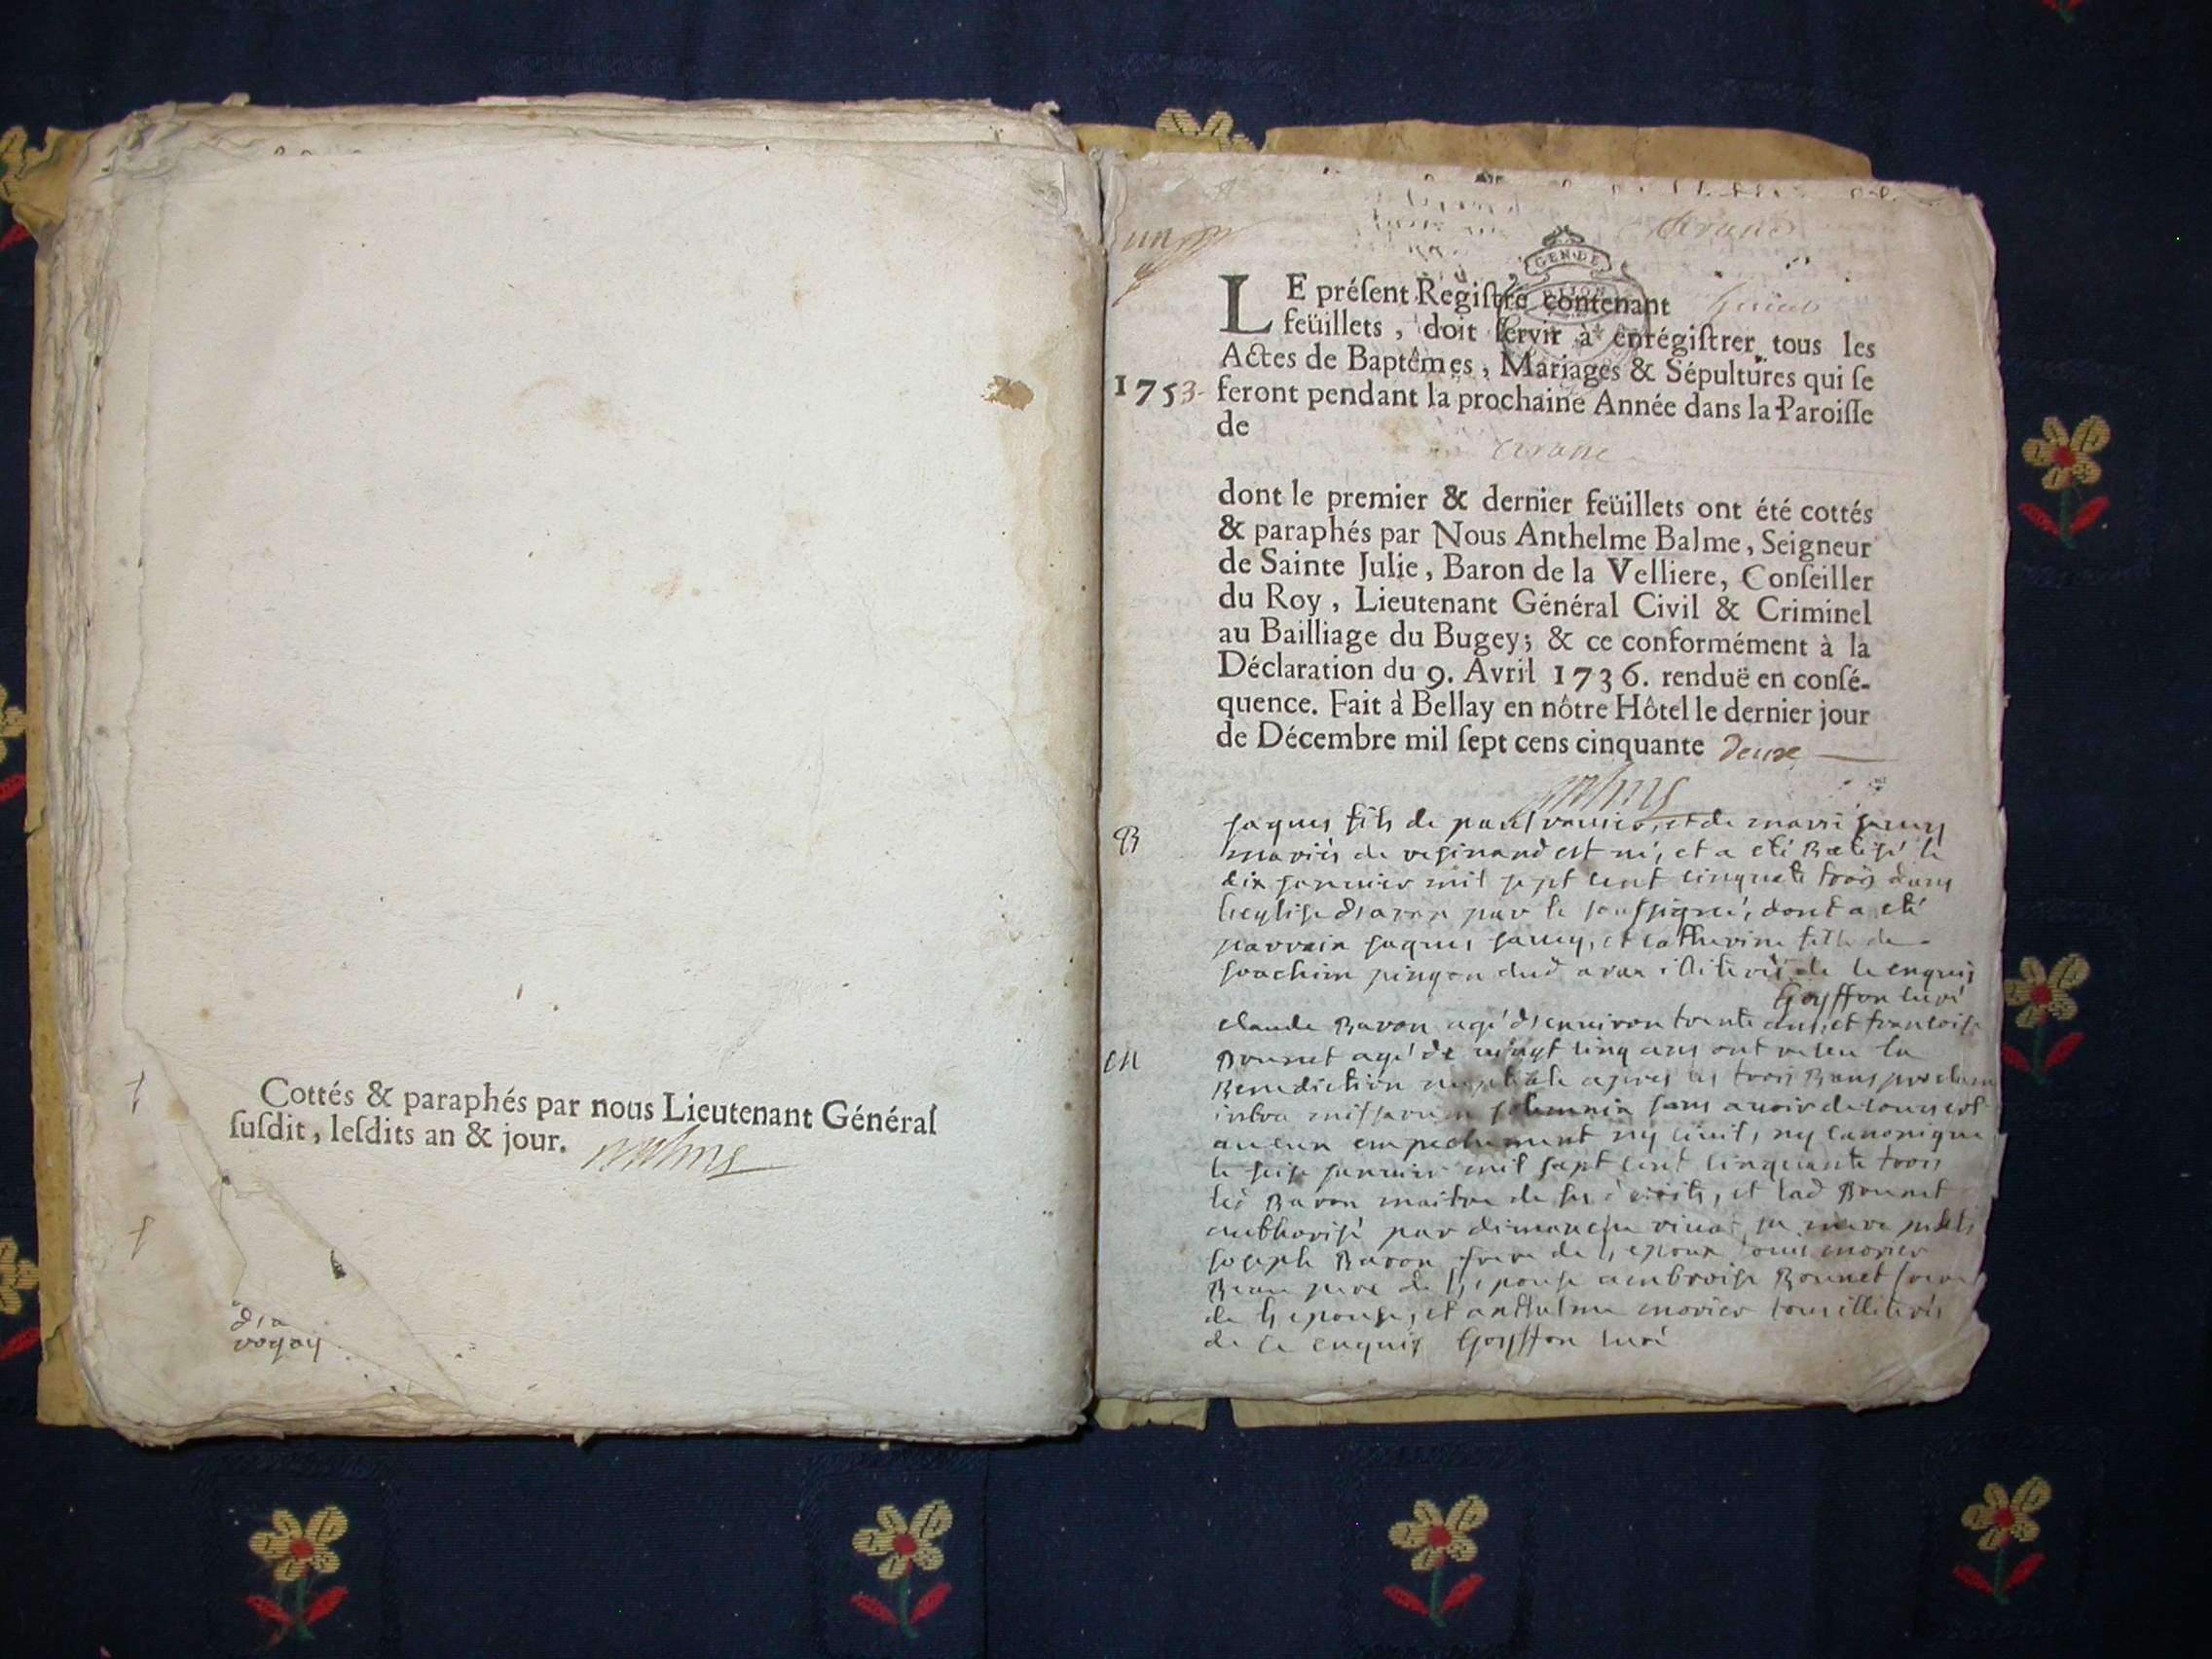 Cottés & paraphés par nous Lieutenant Général
ſuſdit, leſdits an & jour.
voyay
un
GEN·DE
DIJON
LE préſent Regiſtre contenant
feüillets, doit ſervir à enrégiſtrer tous les
Actes de Baptêmes, Mariages & Sépultures qui ſe
1753 feront pendant la prochaine Année dans la Paroiſſe
de
arane
dont le premier & dernier feüillets ont été cottés
& paraphés par Nous Anthelme Balme, Seigneur
de Sainte Julie, Baron de la Velliere, Conſeiller
du Roy, Lieutenant Général Civil & Criminel
au Bailliage du Bugey; & ce conformément à la
Déclaration du 9. Avril 1736. renduë en conſé-
quence. Fait à Bellay en nôtre Hôtel le dernier jour
de Décembre mil ſept cens cinquante deux
B
jaques fils de paul et de marie
mariés de resinand est né, et a eté Batisé le
dix janvier mil sept cent cinquate trois dans
l'eglise d'aran par le soussigné, dont a eté
parrain jaques et catherine fille de
joachim pingon dud aran illiterés de ce enquis
Goyffon curé
claude Baron agé d'environ trente ans, et francoise
M
Bonnet agé de vingt cinq ans ont receu la
Benediction nuptiale apres les trois Bans proclam
intra missarum solemnia sans avoir decouvert
aucun empechement ny civil, ny canonique
le seise janvier mil sept cent cinquante trois
led Baron maitre de ses droits, et lad Bonnet
authorisé par dimanche sa mere
joseph Baron frere de l'epoux morier
Beau pere de l'epouse ambroise Bonnet frere
de l'epouse, et anthelme morier tous illiterés
de ce enquis Goyffon curé